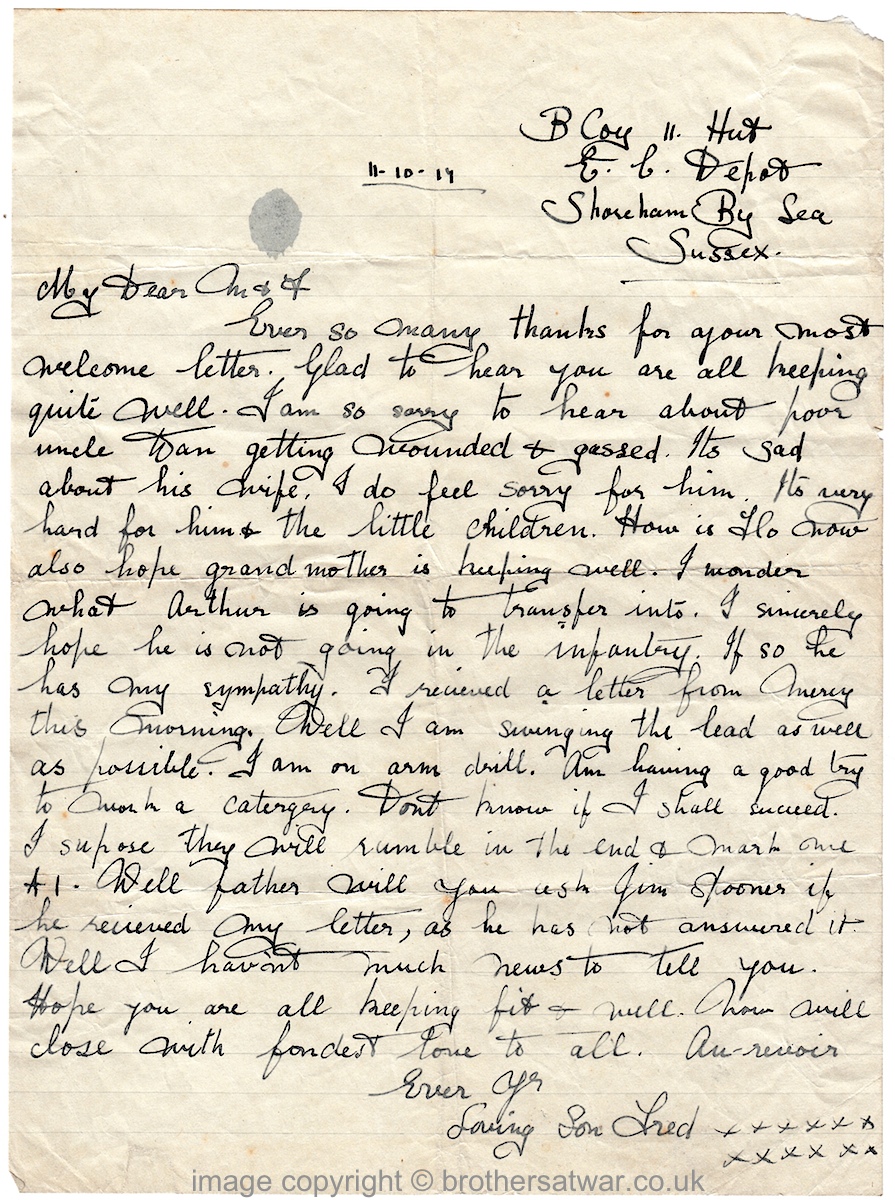 B Coy 11. Hut
E. C. Depot
11-10-17
Shoreham By Sea
Sussex.
My Dear M & F
Ever so many thanks for your most
welcome letter. Glad to hear you are all keeping
quite well. I am so sorry to hear about poor
uncle Dan getting wounded & gassed. Its sad
about his wife. I do feel sorry for him. Its very
hard for him & the little children. How is Flo now
also hope grandmother is keeping well. I wonder
what Arthur is going to transfer into. I sincerely
hope he is not going in the infantry. If so he
has my sympathy. I recieved a letter from Mercy
this morning. Well I am swinging the lead as well
as possible. I am on arm drill. Am having a good try
to work a catergery. Dont know if I shall succeed.
I supose they will rumble in the end & mark me
A1. Well father will you ask Jim Spooner if
he recieved my letter, as he has not answered it.
Well I hav'nt much news to tell you.
Hope you are all keeping fit & well. Now will
close with fondest love to all. Au-revoir
Ever Yr
Loving Son Fred x x x x x x
x x x x x x
image copyright © brothersatwar.co.uk